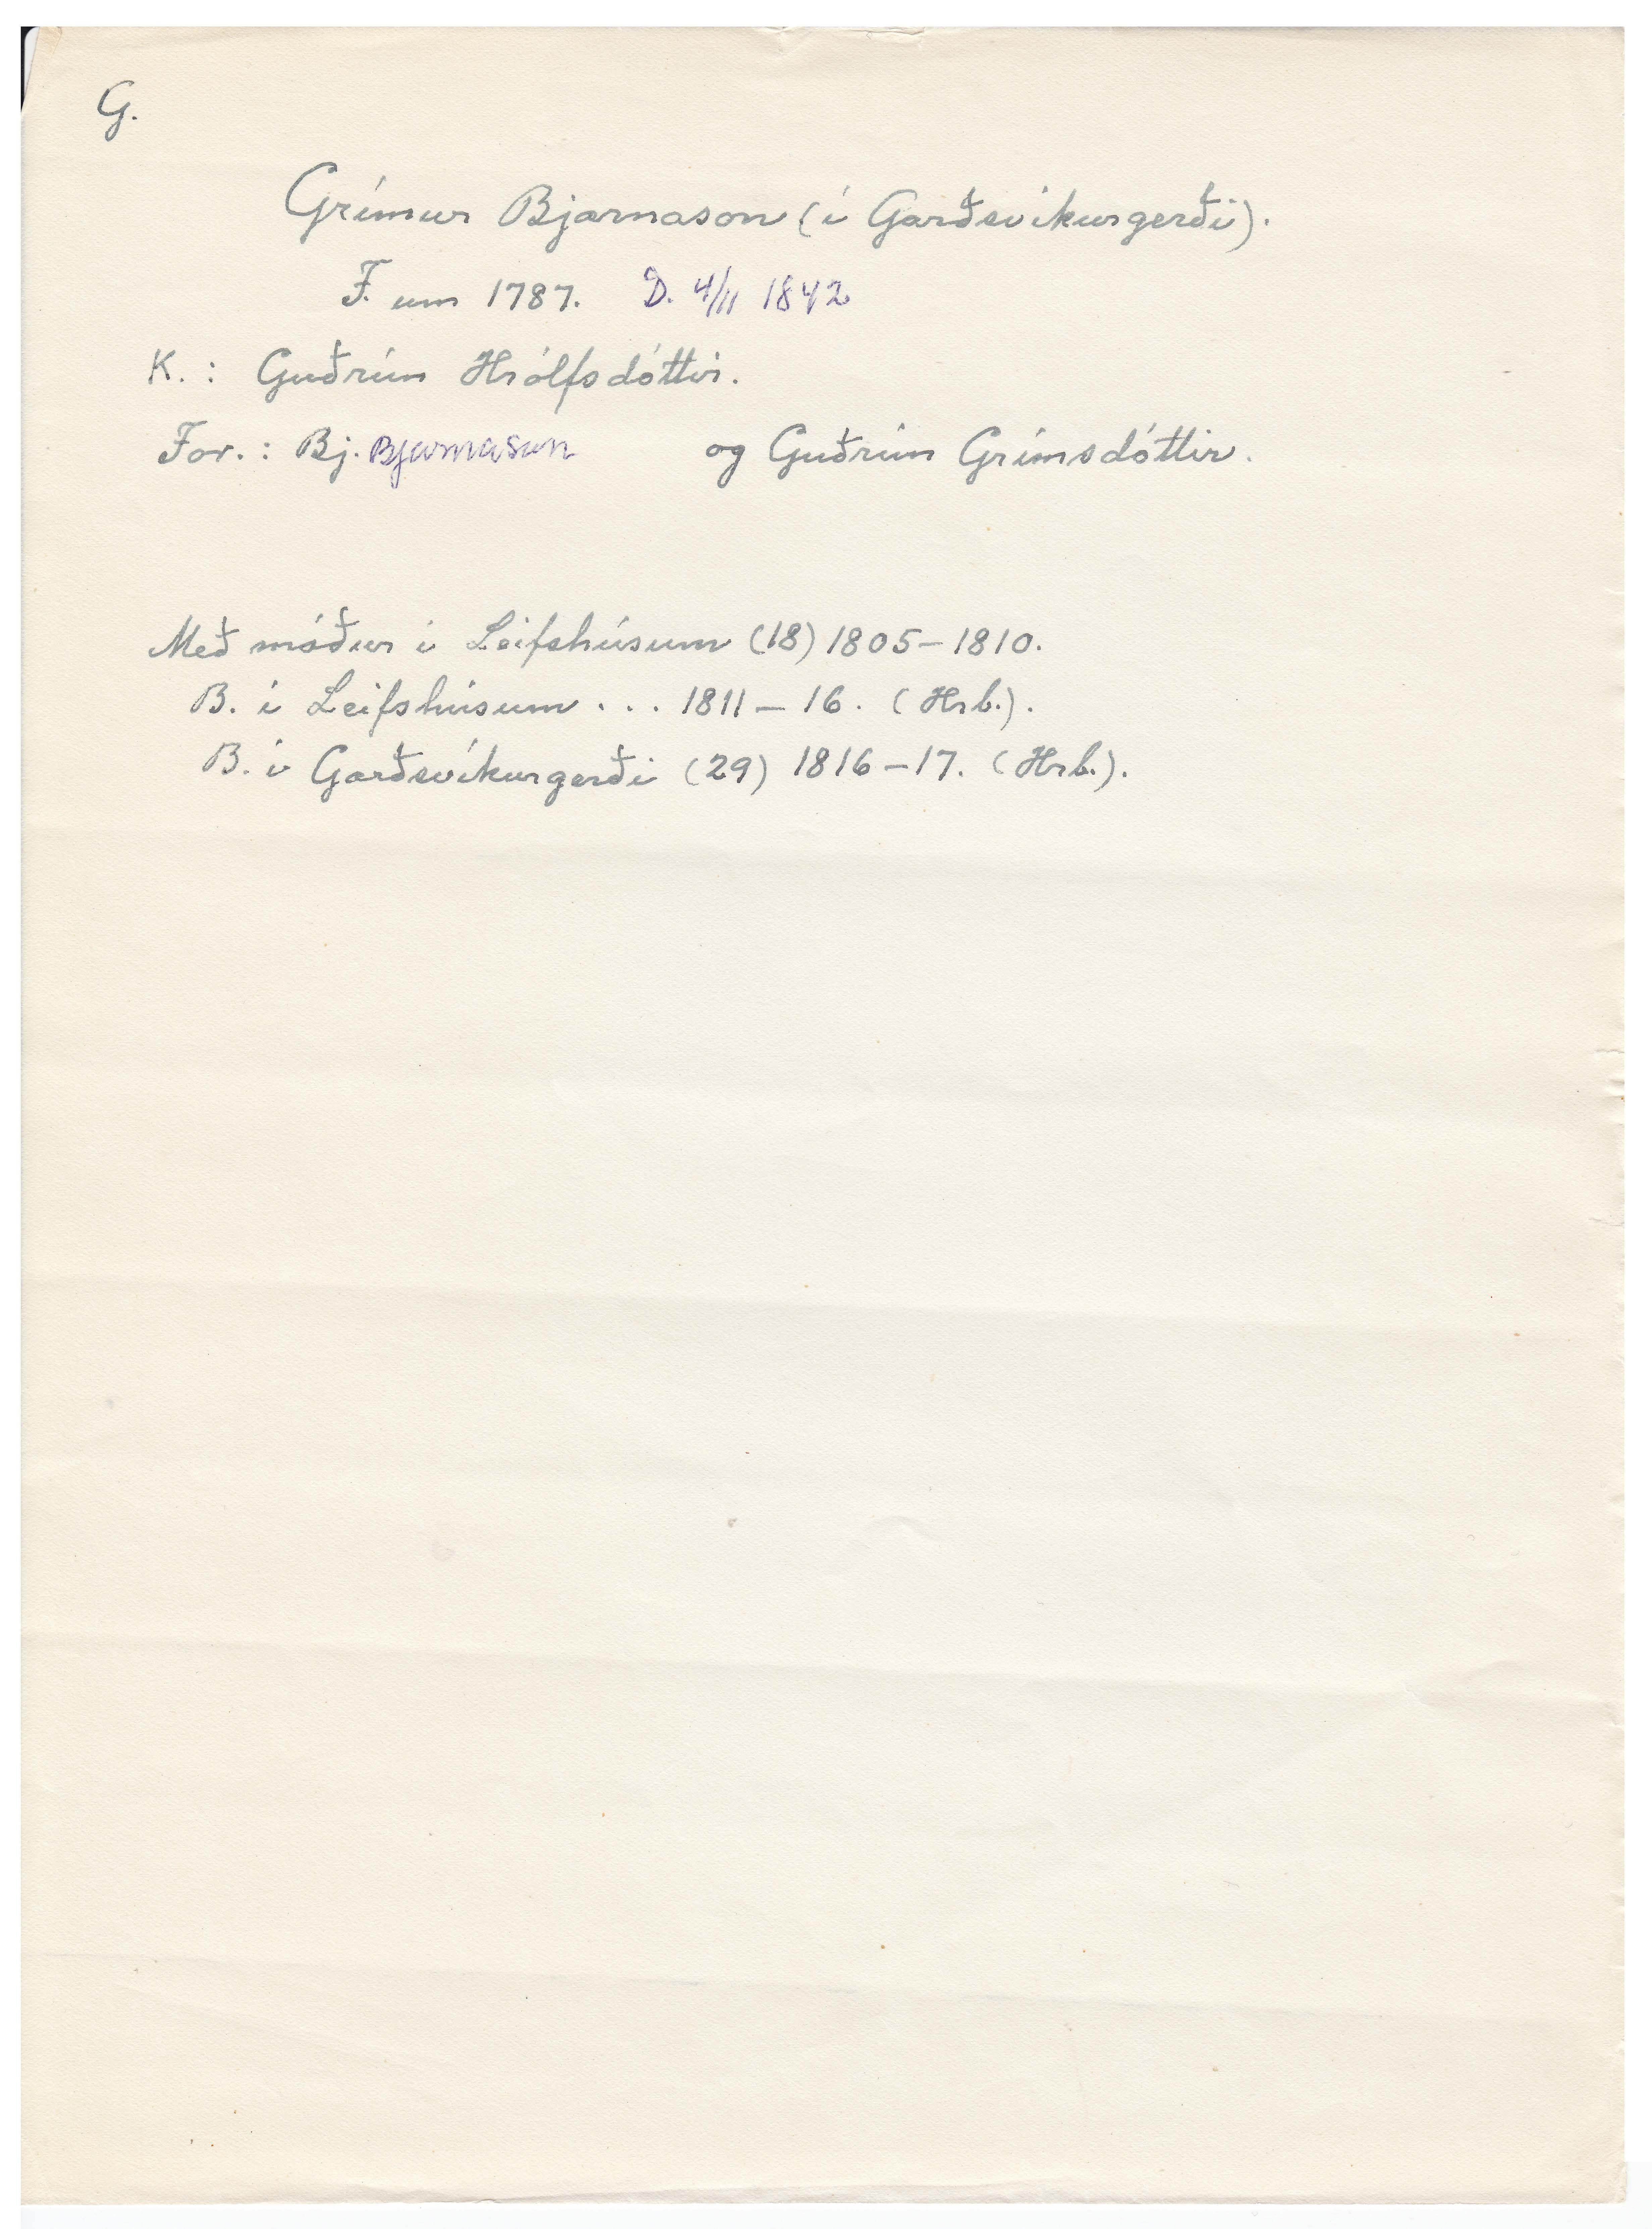 G.
Grímur Bjarnason (í Garðsvíkurgerði).
F. um 1787. D. 4/11 1842
K. : Guðrún Hrólfsdóttir.
For. : Bj. Bjarnason og Guðrún Grímsdóttir.
Með móður í Leifshúsum (18) 1805–1810.
B. í Leifshúsum . . . 1811 – 16. (Hrb.).
B. í Garðsvíkurgerði (29) 1816–17. (Hrb.).